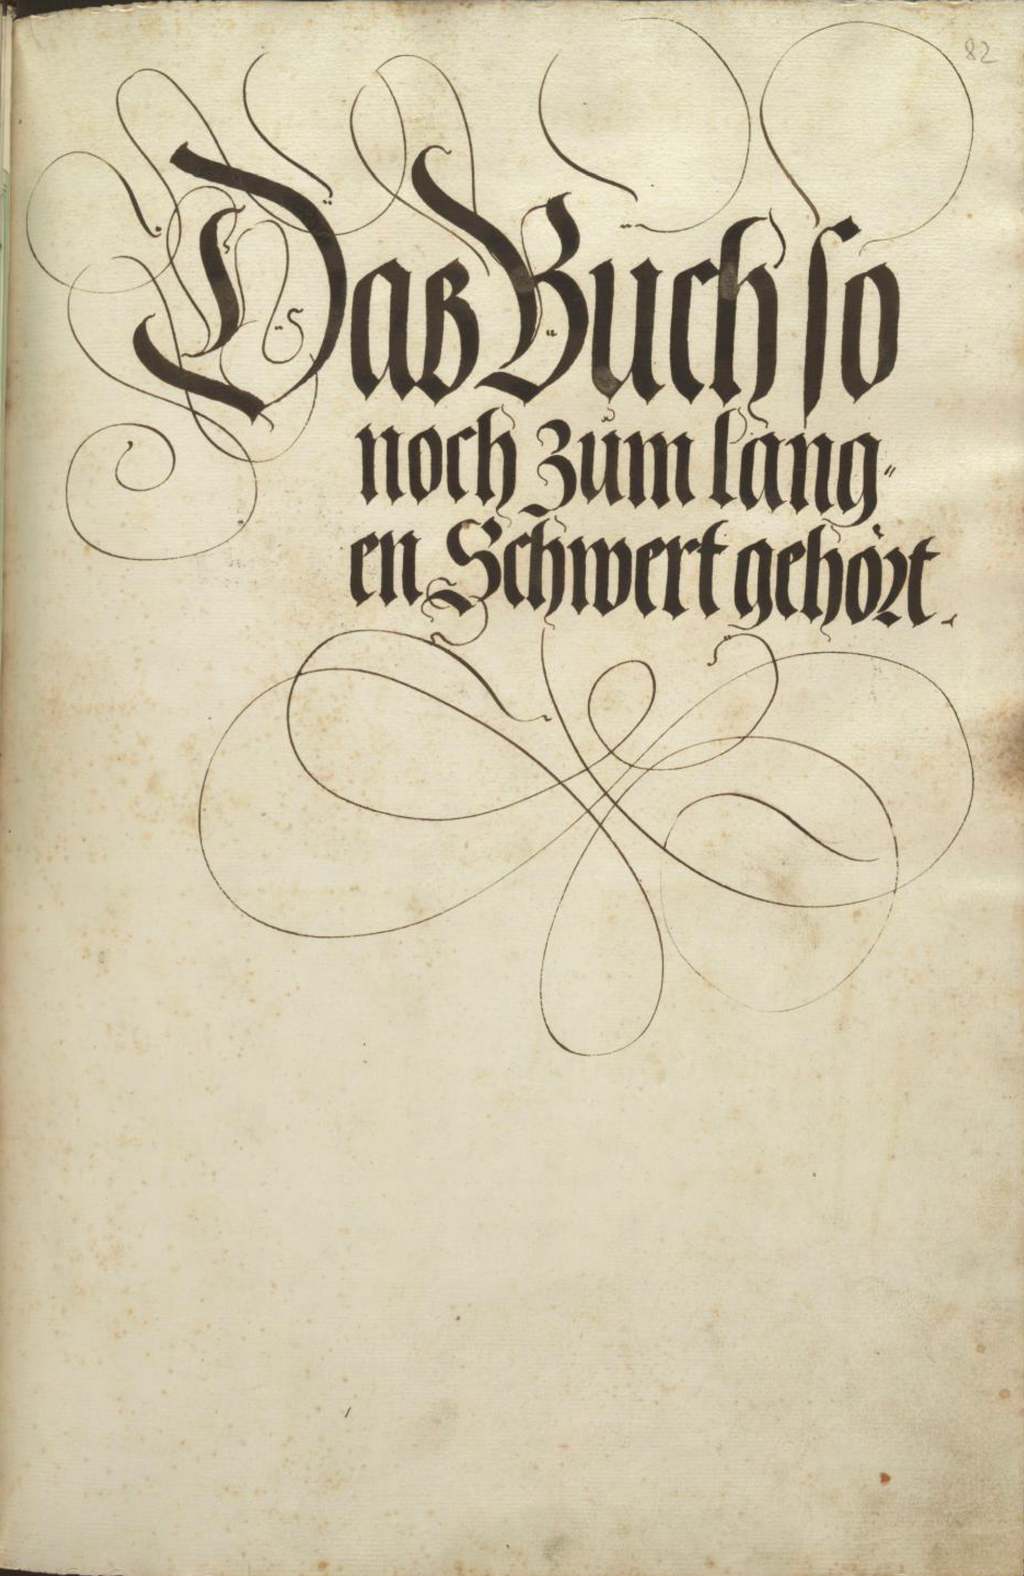 82
Das Buch so
noch zum lang„
en Schwert gehört.